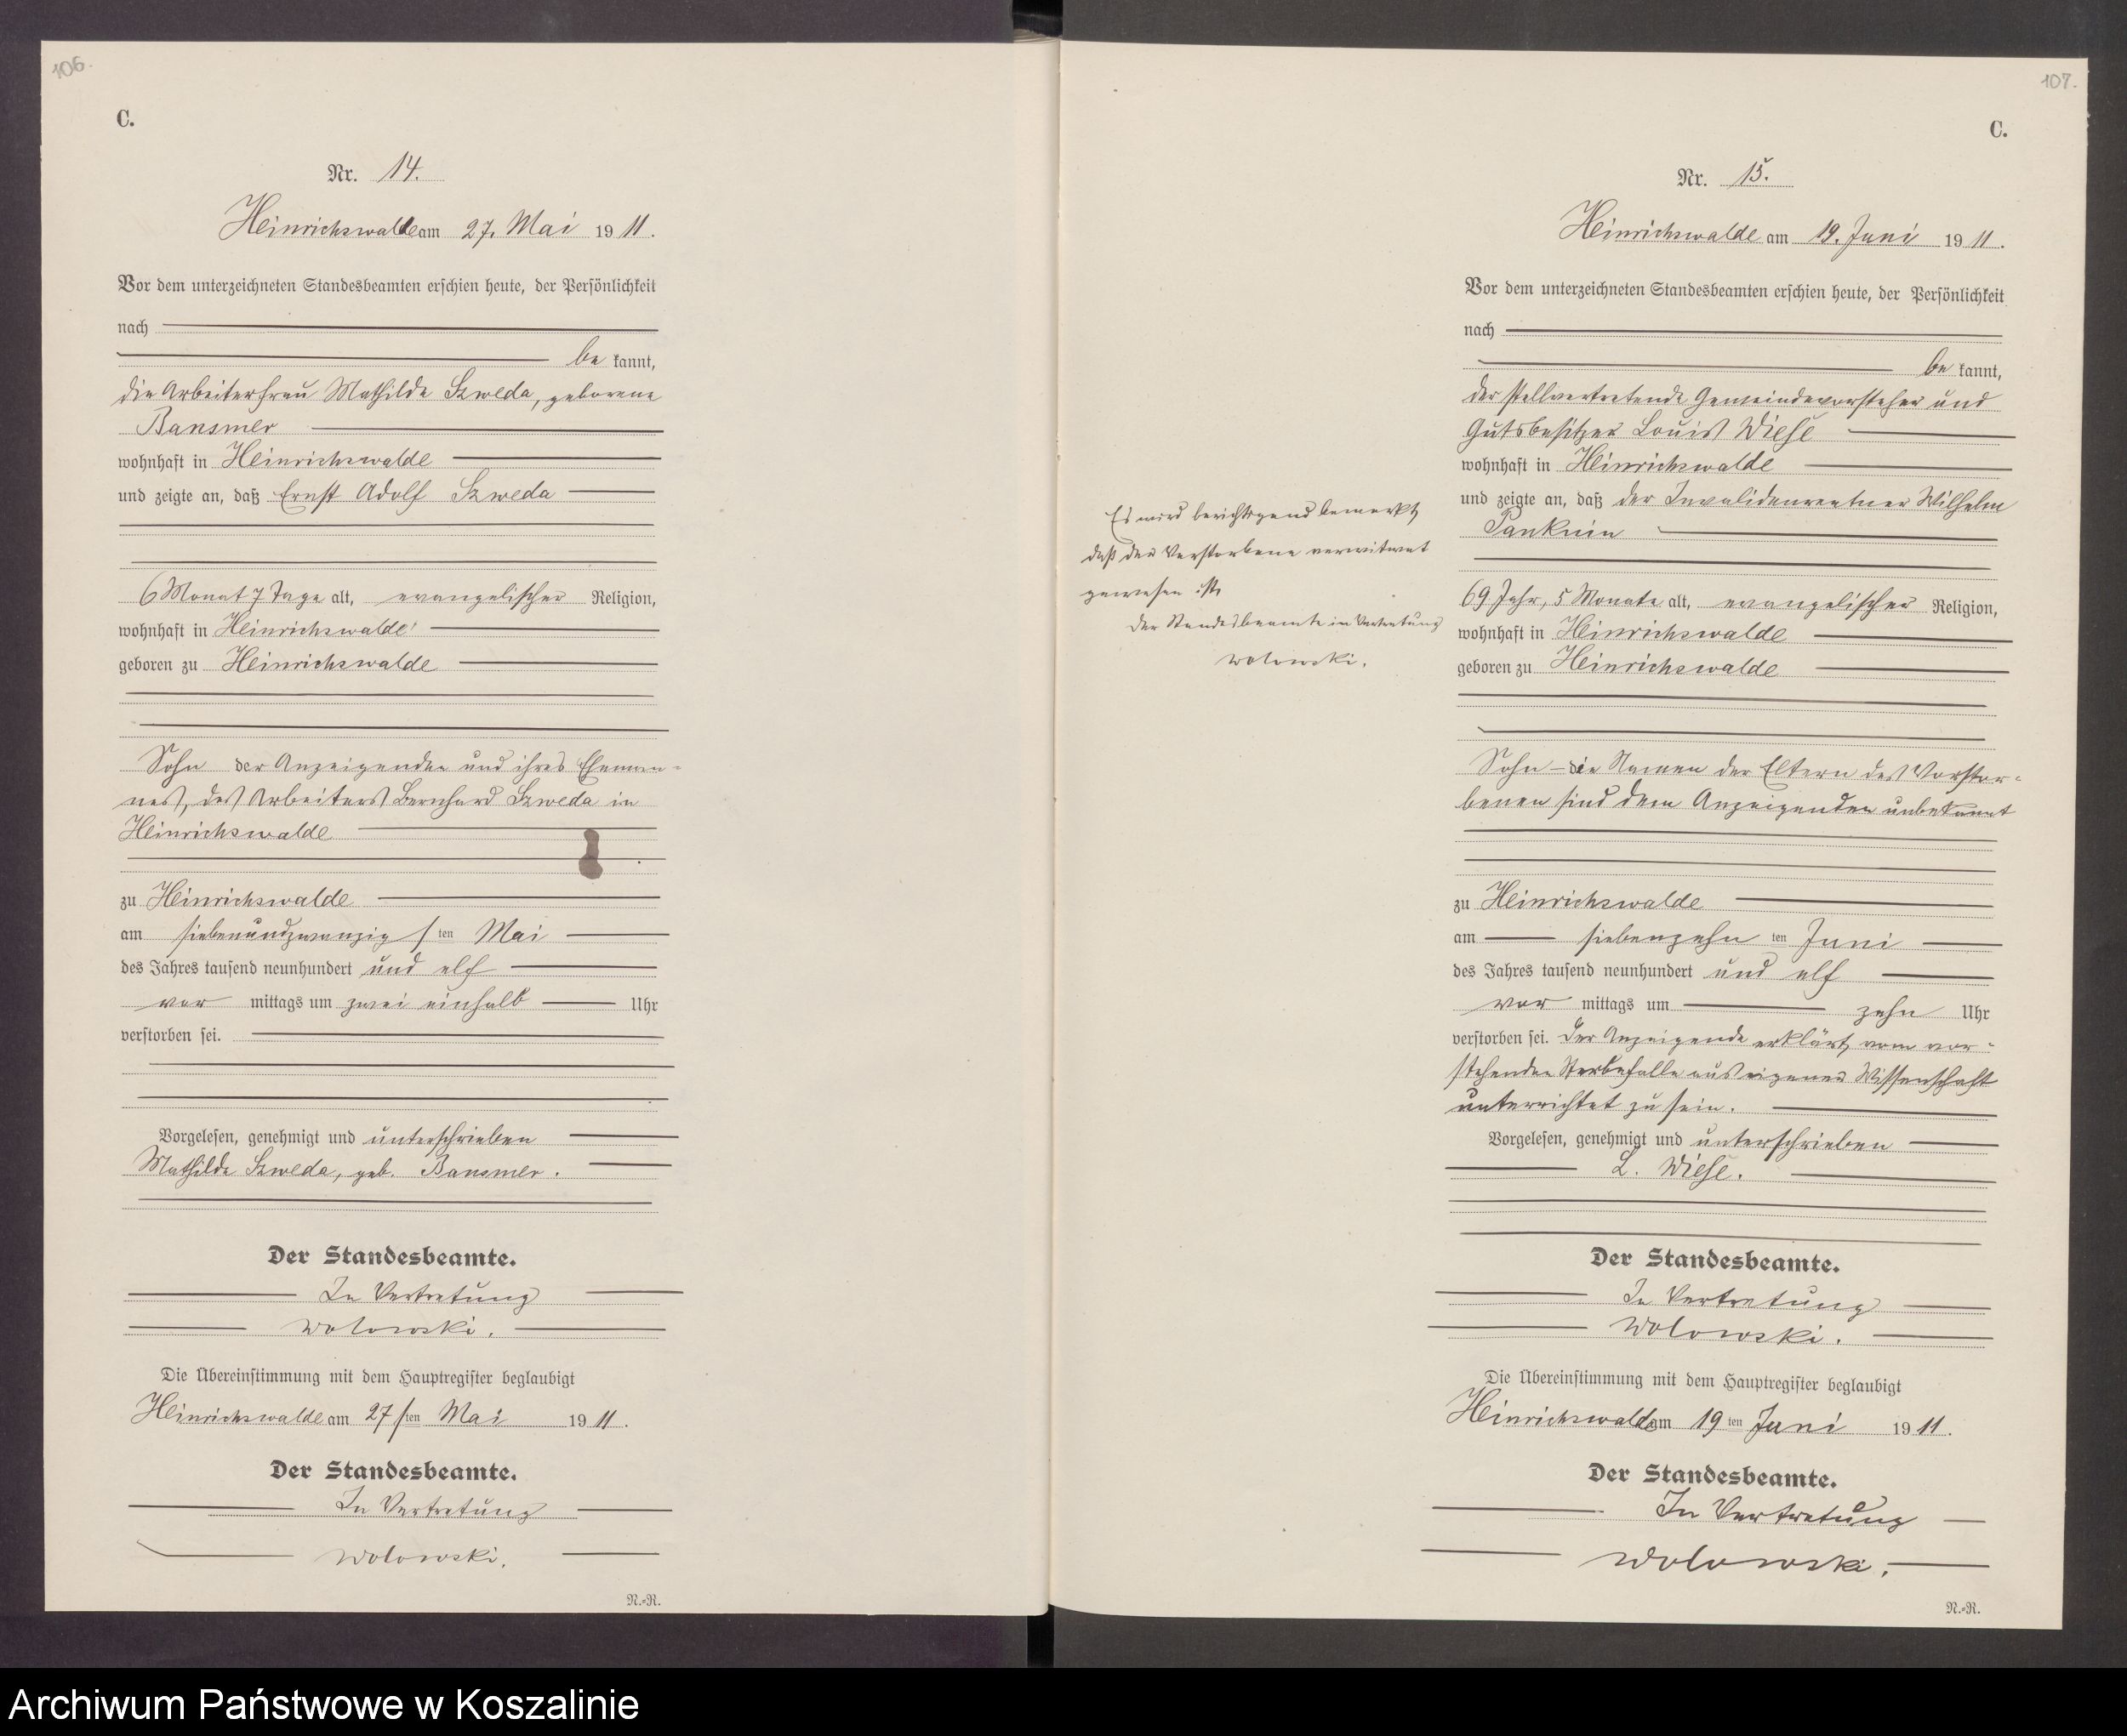 106.
C.
Nr. 14.
Heinrichswalde am 27. Mai 1911.
Vor dem unterzeichneten Standesbeamten erschien heute, der Persönlichkeit
nach
be kannt,
die Arbeiterfrau Mathilde Szweda, geborene
Bansmer
wohnhaft in Heinrichswalde
und zeigte an, daß Ernst Adolf Szweda
6 Monat 7 Tage alt, evangelischer Religion,
wohnhaft in Heinrichswalde
geboren zu Heinrichswalde
Sohn der Anzeigenden und ihres Eheman-
nes, des Arbeiters Bernhard Szweda in
Heinrichswalde
zu Heinrichswalde
am siebenundzwanzigsten Mai
des Jahres tausend neunhundert und elf
vor mittags um zwei einhalb Uhr
verstorben sei.
Vorgelesen, genehmigt und unterschrieben
Mathilde Szweda, geb. Bansmer.
Der Standesbeamte.
In Vertretung
Wolowski.
Die Übereinstimmung mit dem Hauptregister beglaubigt
Heinrichswalde am 27sten Mai 1911.
Der Standesbeamte.
In Vertretung
Wolowski.
N.-R.
107.
C.
Nr. 15.
Heinrichswalde am 19. Juni 1911.
Vor dem unterzeichneten Standesbeamten erschien heute, der Persönlichkeit
nach
be kannt,
der stellvertretende Gemeindevorsteher und
Gutsbesitzer Louis Wiese
wohnhaft in Heinrichswalde
und zeigte an, daß der Invalidenrentner Wilhelm
Panknin
69 Jahr, 5 Monate alt, evangelischer Religion,
wohnhaft in Heinrichswalde
geboren zu Heinrichswalde
Sohn – die Namen der Eltern des Verstor-
benen sind dem Anzeigenden unbekannt
zu Heinrichswalde
am siebenzehn ten Juni
des Jahres tausend neunhundert und elf
vor mittags um zehn Uhr
verstorben sei. Der Anzeigende erklärt, vom vor-
stehenden Sterbefalle aus eigener Wissenschaft
unterrichtet zu sein.
Vorgelesen, genehmigt und unterschrieben
L. Wiese.
Der Standesbeamte.
In Vertretung
Wolowski.
Die Übereinstimmung mit dem Hauptregister beglaubigt
Heinrichswalde am 19ten Juni 1911.
Der Standesbeamte.
In Vertretung
Wolowski.
N.-R.
Es wird berichtigend bemerkt,
daß der Verstorbene verwitwet
gewesen ist.
Der Standesbeamte in Vertretung
Wolowski.
Archiwum Państwowe w Koszalinie